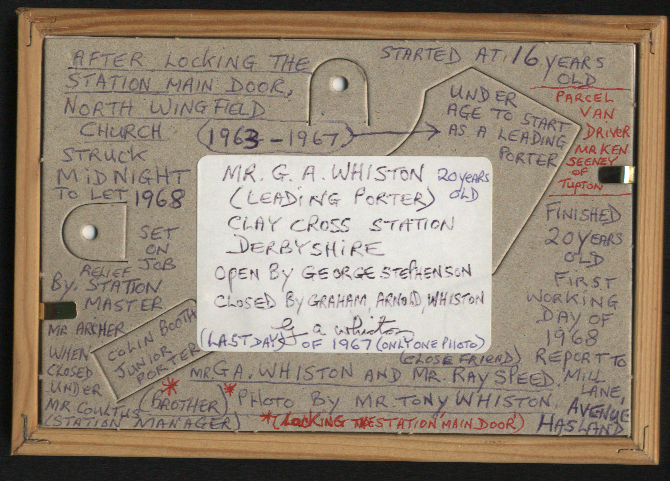 AFTER LOCKING THE
STATION MAIN DOOR,
NORTH WINGFIELD
CHURCH (1963-1967)
STRUCK
MIDNIGHT
TO LET 1968
STARTED AT 16 YEARS
OLD
UNDER
AGE TO START
AS A LEADING
PORTER
PARCEL
VAN
DRIVER
MR KEN
SEENEY
OF
TUPTON
MR. G. A. WHISTON 20 YEARS
(LEADING PORTER) OLD
CLAY CROSS STATION
DERBYSHIRE
OPEN BY GEORGE STEPHENSON
CLOSED BY GRAHAM, ARNOLD, WHISTON
G a Whiston
(LAST DAYS) OF 1967 (ONLY ONE PHOTO)
SET
ON
JOB
RELIEF
BY. STATION
MASTER
MR ARCHER.
WHEN
CLOSED
UNDER
MR COULTHS
(STATION MANAGER)
COLIN BOOTH
JUNIOR
PORTER
FINISHED
20 YEARS
OLD
FIRST
WORKING
DAY OF
1968
REPORT TO
MILL
LANE,
AVENUE
HASLAND
(CLOSE FRIEND)
MR GA. WHISTON AND MR. RAY SPEED.
*(BROTHER)* PHOTO BY MR. TONY WHISTON.
*(LOCKING THE STATION 'MAIN DOOR')